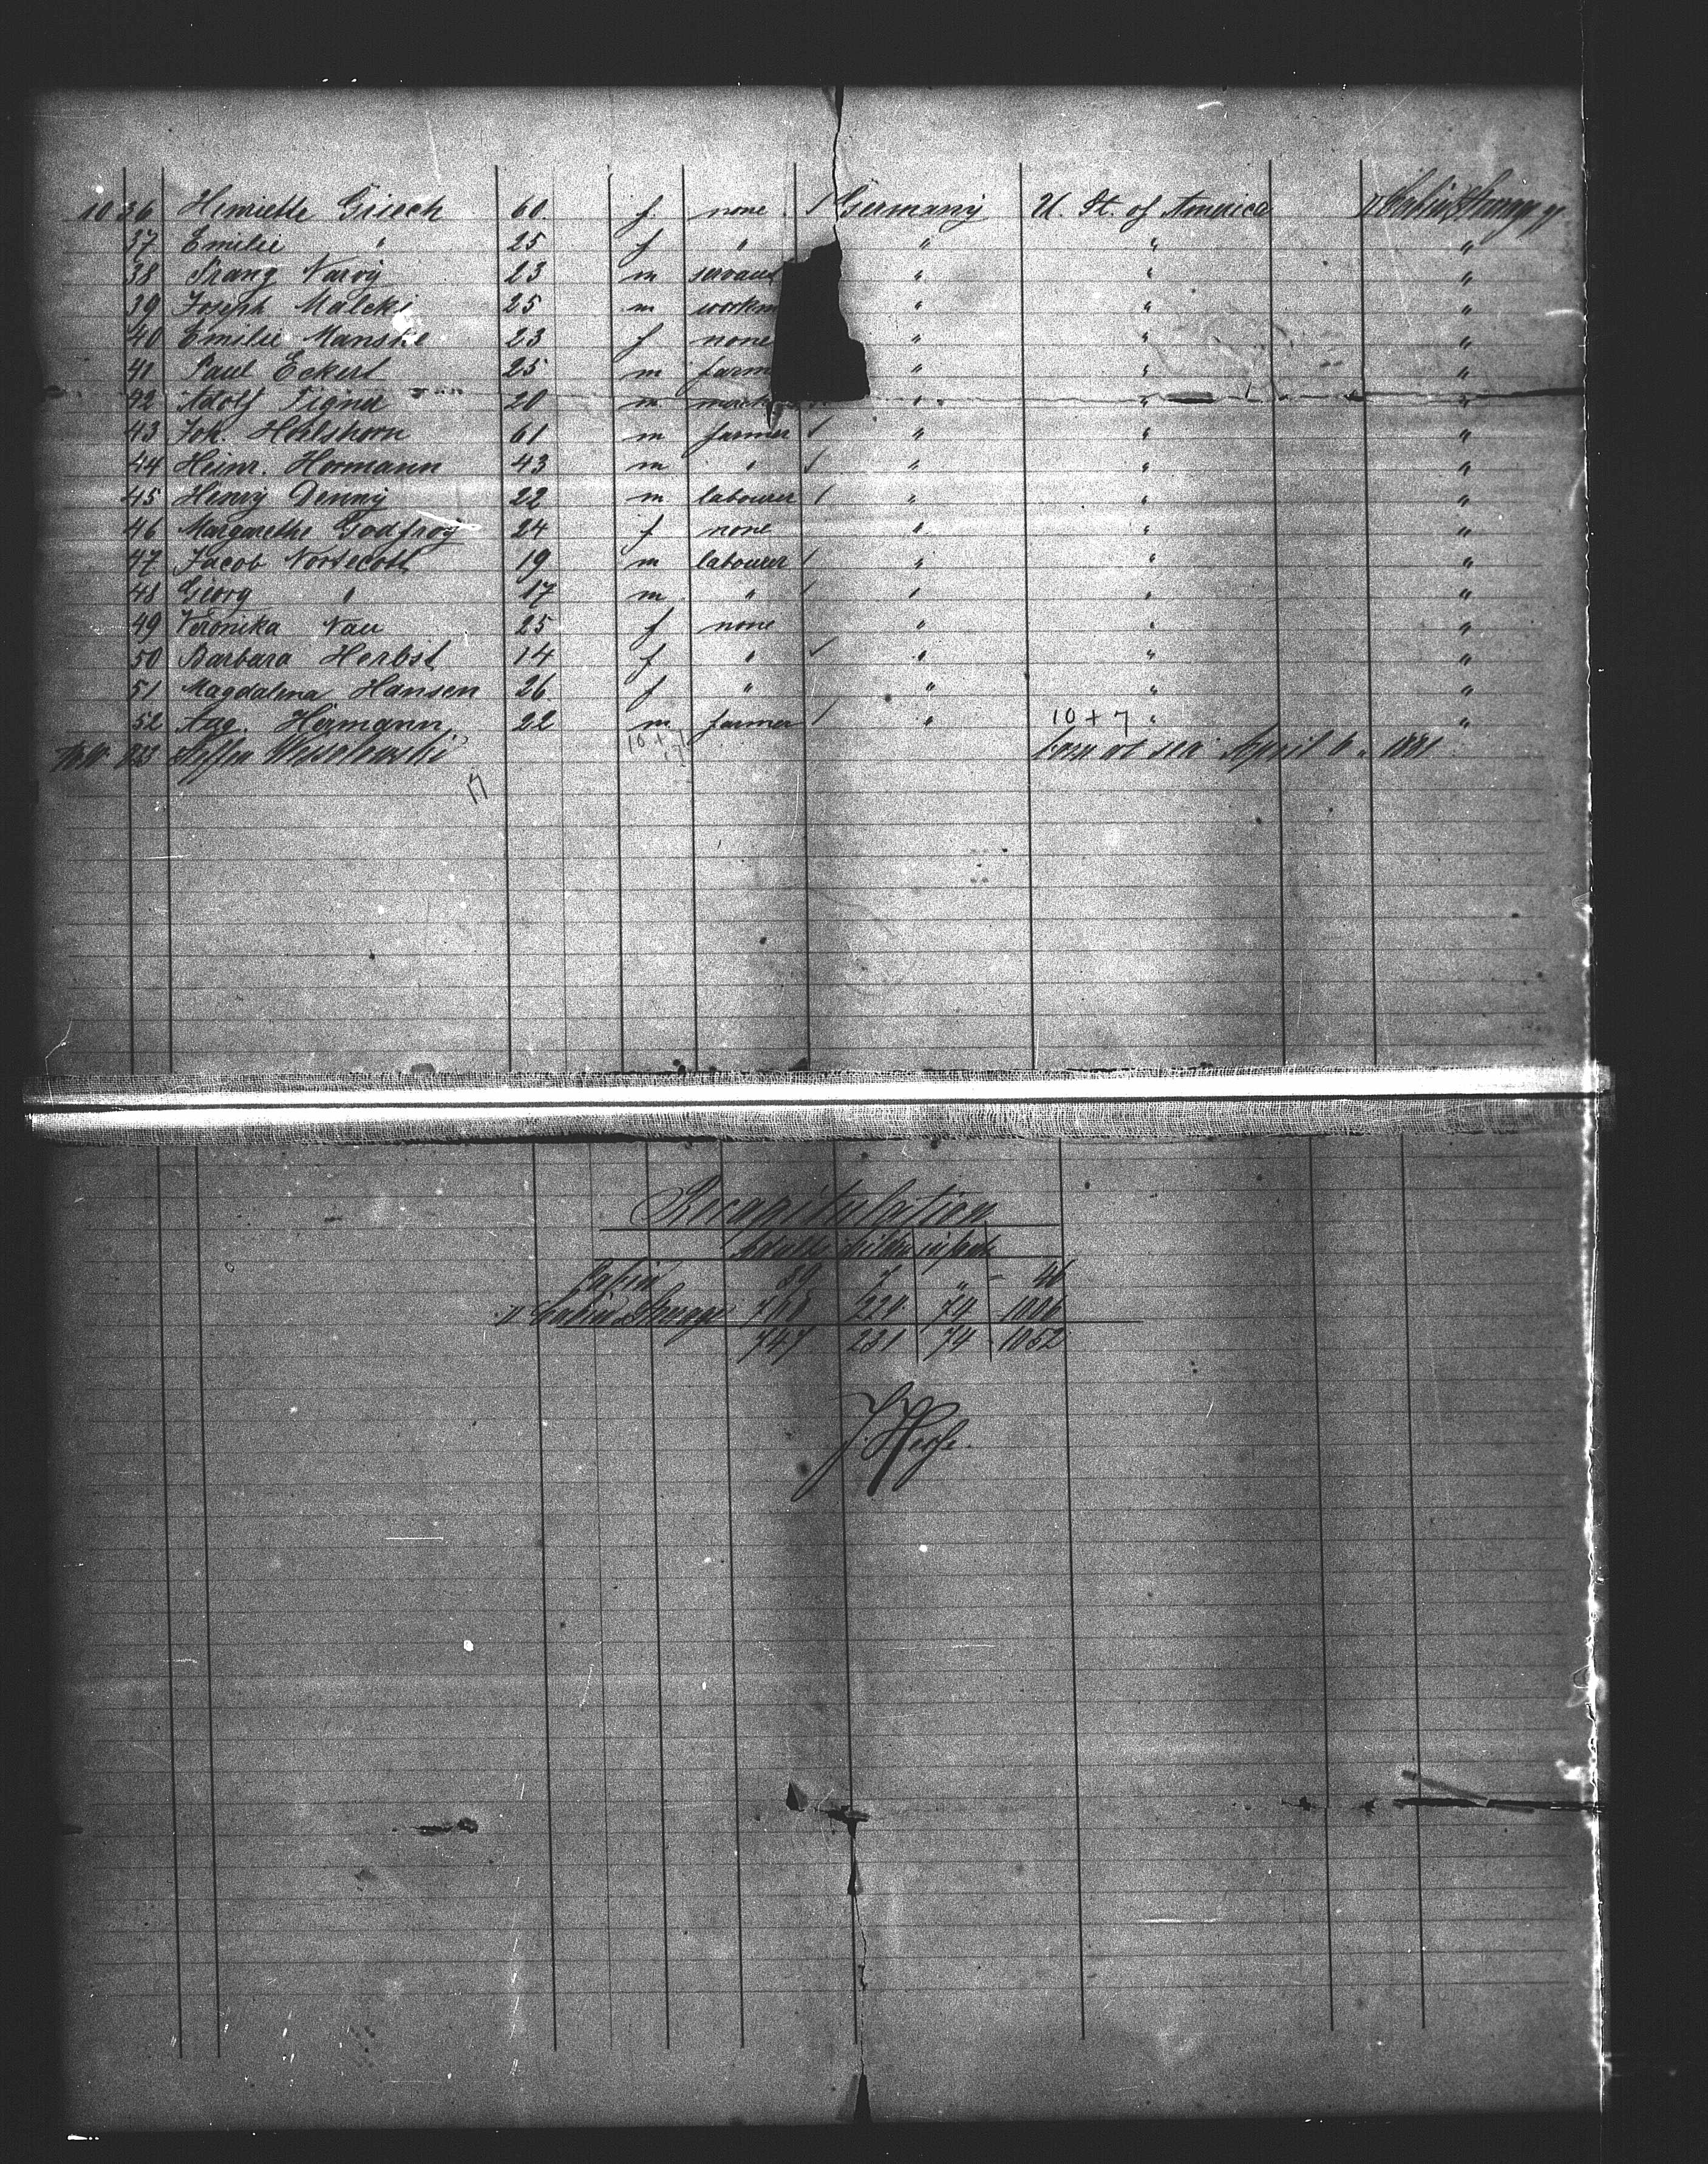 1036 Henriette Griech 60 f none / Germany U. St. of America II Cabin & Steerage
37 Emilie " 25 f " " " "
38 Franz Narvy 23 m servant " " "
39 Joseph Malcki 25 m workm " " "
40 Emilie Manske 23 f none " " "
41 Paul Eckert 25 m farm " " "
42 Adolf Signer 20 m " " "
43 Joh. Hohlshorn 61 m farmer / " " "
44 Heinr. Hormann 43 m " / " " "
45 Henry Denny 22 m labourer / " " "
46 Margarethe Godfroy 24 f none " " "
47 Jacob Nortecott 19 m labourer / " " "
48 Georg " 17 m " / " " "
49 Veronika Nau 25 f none " " "
50 Barbara Herbst 14 f " / " " "
51 Magdalena Hansen 26 f " " " "
52 Aug. Hermann 22 m farmer / " 10 + 7 " "
Steffen Wessolowski 10 + 7 born at sea April 6. 1881
17
Recapitulation
Adults children infants
Cabin 39 7 " = 46
II Cabin & Steerage 708 224 74 - 1006
747 231 74 - 1052
J. Hesse.